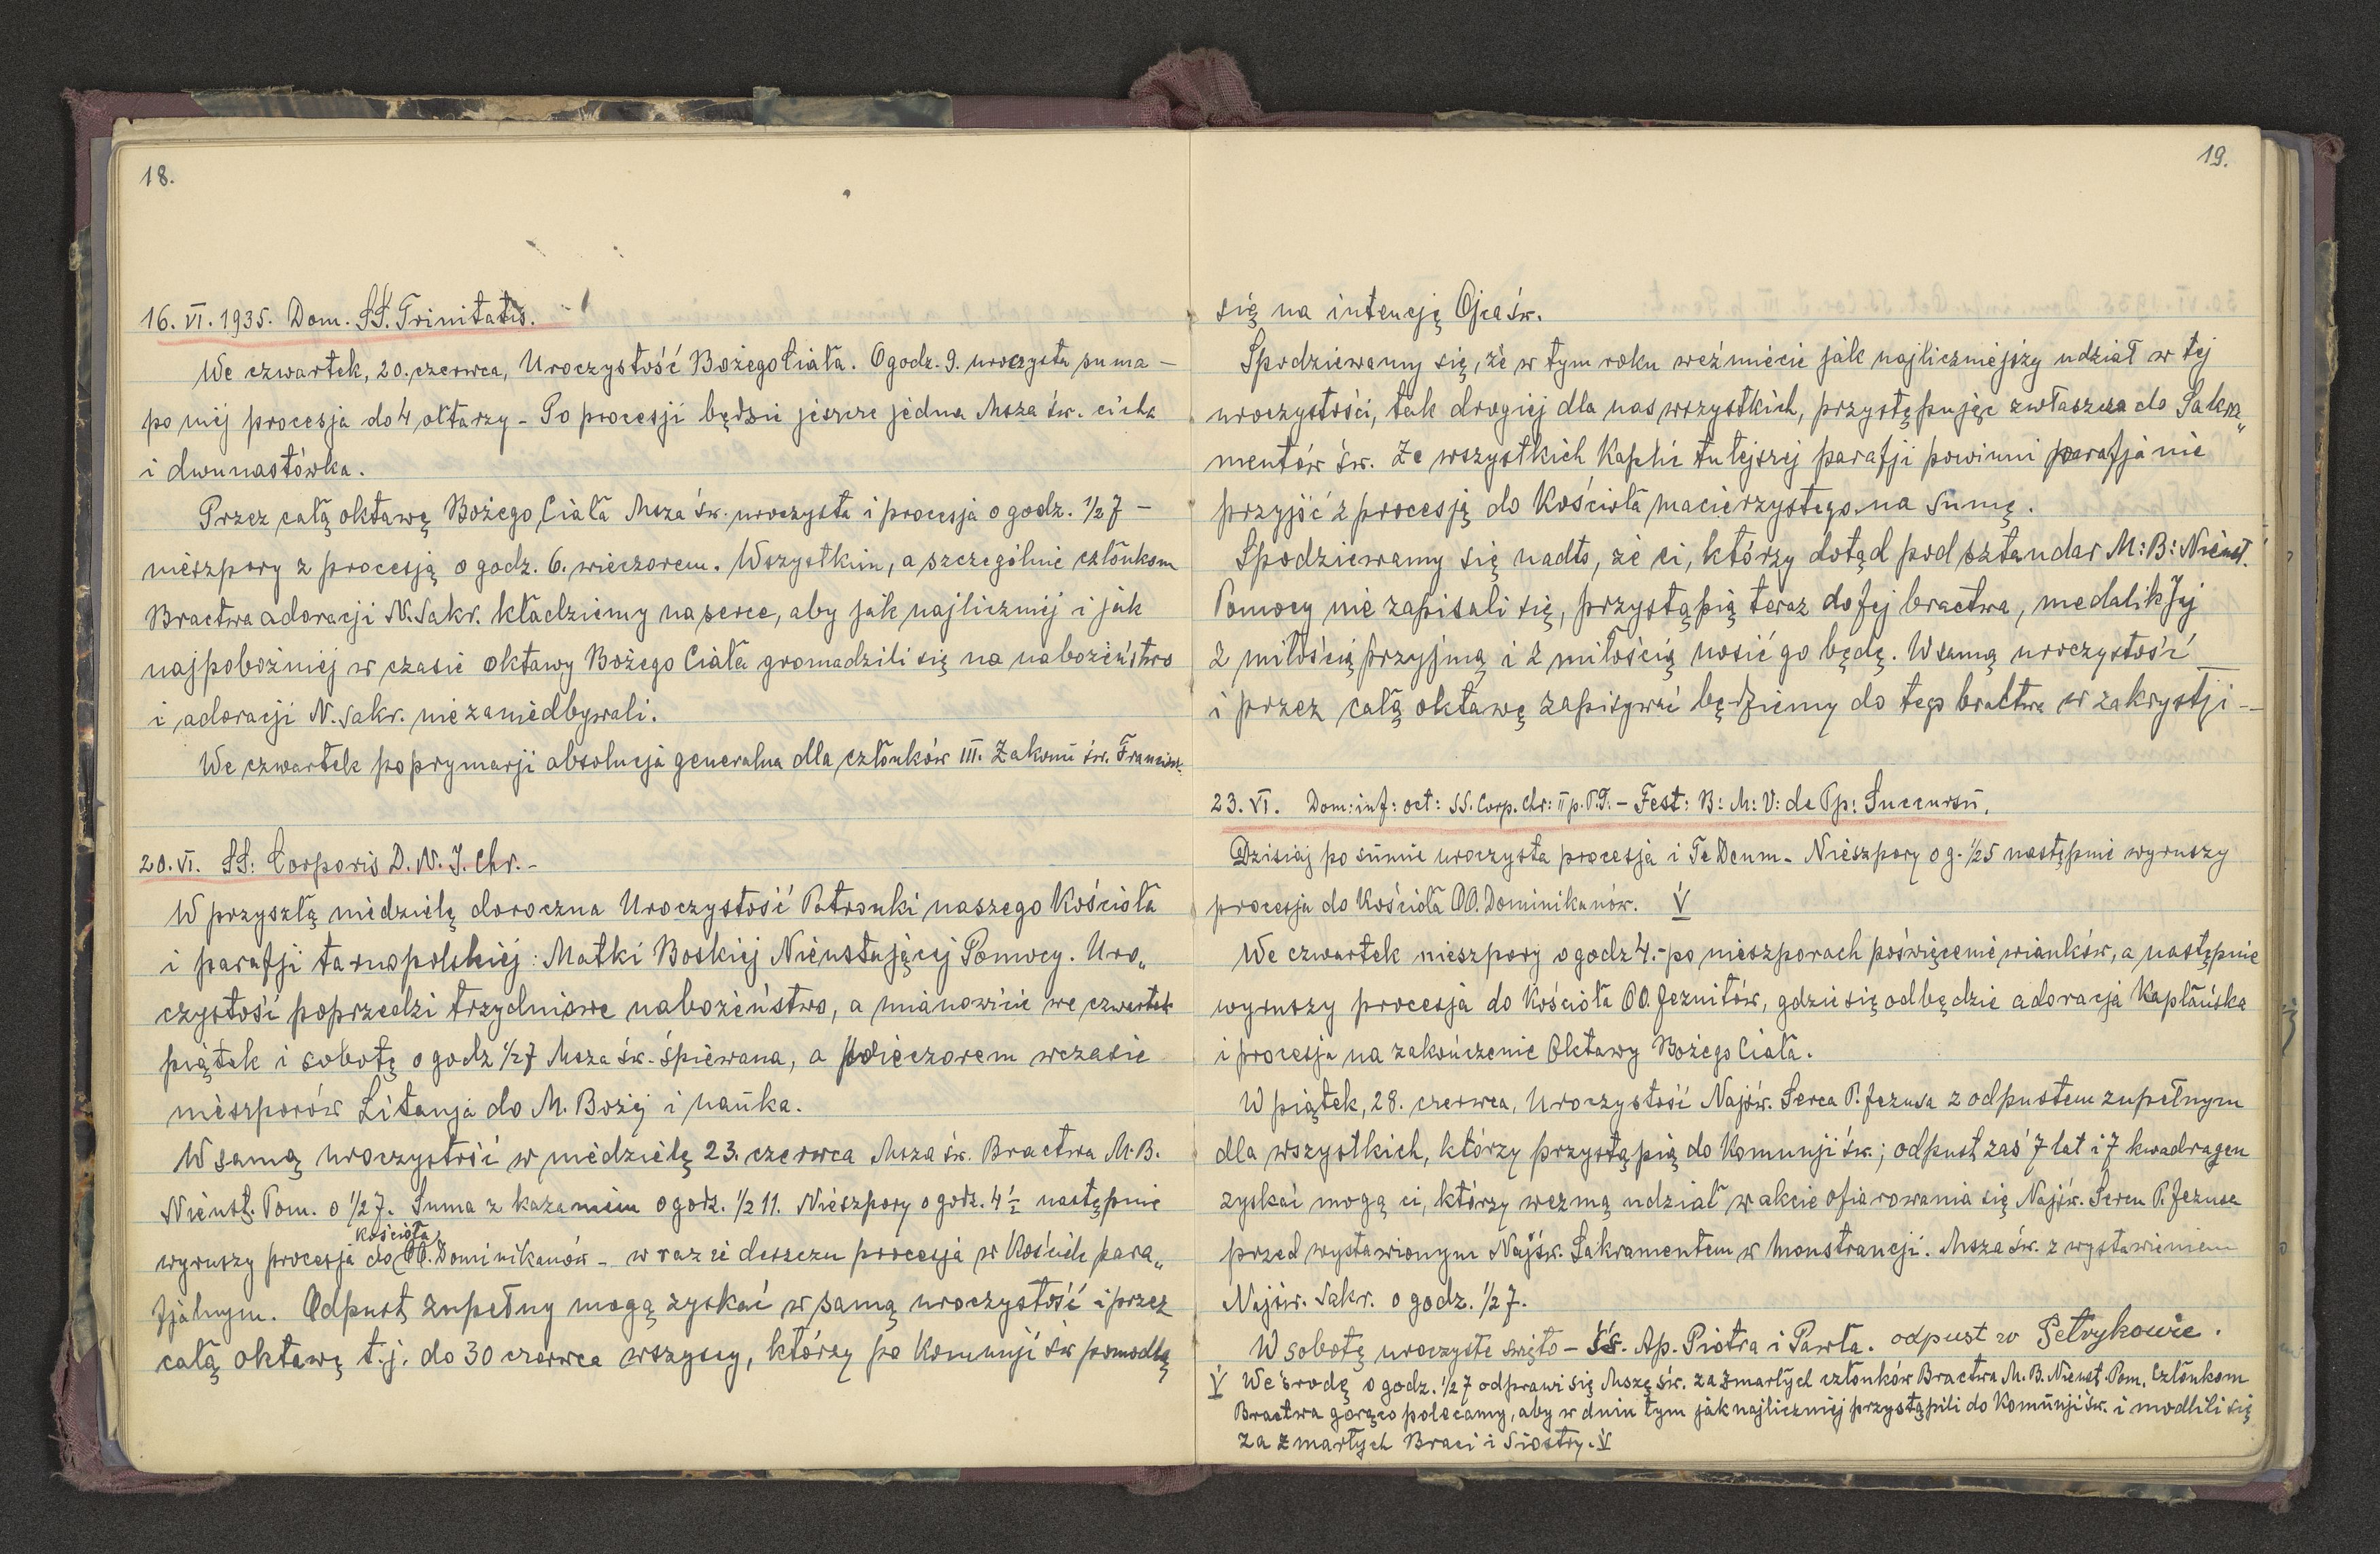 18.
16. VI. 1935. Dom. SS. Trinitatis.
We czwartek, 20. czerwca, Uroczystość Bożego Ciała. O godz. 9. uroczysta suma –
po niej procesja do 4 ołtarzy – Po procesji będzie jeszcze jedna Msza św. cicha
i dwunastówka.
Przez całą oktawę Bożego Ciała Msza św. uroczysta i procesja o godz. 1/2 7 –
nieszpory z procesją o godz. 6. wieczorem. Wszystkim, a szczególnie członkom
Bractwa adoracji N. Sakr. kładziemy na serce, aby jak najliczniej i jak
najpobożniej w czasie oktawy Bożego Ciała gromadzili się na nabożeństwo
i adoracji N. Sakr. nie zaniedbywali.
We czwartek po prymarji absolucja generalna dla członków III. Zakonu św. Francisz.
20. VI. SS: Corporis D. N. J. Chr. –
W przyszłą niedzielę doroczna Uroczystość Patronki naszego Kościoła
i parafji tarnopolskiej: Matki Boskiej Nieustającej Pomocy. Uro„
czystość poprzedzi trzydniowe nabożeństwo, a mianowicie we czwartek
piątek i sobotę o godz 1/2 7 Msza św. śpiewana, a wieczorem w czasie
nieszporów Litanja do M. Bożej i nauka.
W samą uroczystość w niedzielę 23. czerwca Msza św. Bractwa M. B.
Nieust. Pom. o 1/2 7. Suma z kazaniem o godz. 1/2 11. Nieszpory o godz. 4 1/2 następnie
wyruszy procesja do Kościoła OO. Dominikanów – w razie deszczu procesja w Kościele para„
fjalnym. Odpust zupełny mogą zyskać w samą uroczystość i przez
całą oktawę t. j. do 30 czerwca wszyscy, którzy po Komunji św pomodlą
19.
się na intencję Ojca św.
Spodziewamy się, że w tym roku weźmiecie jak najliczniejszy udział w tej
uroczystości, tak drogiej dla nas wszystkich, przystępując zwłaszcza do Sakra„
mentów św. Ze wszystkich Kaplic tutejszej parafji powinni parafjanie
przyjść z procesją do Kościoła macierzystego na sumę.
Spodziewamy się nadto, że ci, którzy dotąd pod sztandar M: B: Nieust.
Pomocy nie zapisali się, przystąpią teraz do Jej bractwa, medalik Jej
z miłością przyjmą i z miłością nosić go będą. W samą uroczystość
i przez całą oktawę zapisywać będziemy do tego bractwa w zakrystji –
23. VI. Dom: inf: oct: SS. Corp. Chr: II p. P. – Fest: B: M: V: de Pp: Succursu.
Dzisiaj po sumie uroczysta procesja i Te Deum – Nieszpory o g. 1/2 5 następnie wyruszy
procesja do Kościoła OO. Dominikanów. V
We czwartek nieszpory o godz 4. – po nieszporach poświęcenie wianków, a następnie
wyruszy procesja do Kościoła OO. Jezuitów, gdzie się odbędzie adoracja Kapłańska
i procesja na zakończenie Oktawy Bożego Ciała.
W piątek, 28. czerwca, Uroczystość Najśw. Serca P. Jezusa z odpustem zupełnym
dla wszystkich, którzy przystąpią do Komunji św.; odpust zaś 7 lat i 7 kwadragen
zyskać mogą ci, którzy wezmą udział w akcie ofiarowania się Najśw. Sercu P. Jezusa
przed wystawionym Najśw. Sakramentem w Monstrancji. Msza św. z wystawieniem
Najśw. Sakr. o godz. 1/2 7.
W sobotę uroczyste święto – śś. Ap. Piotra i Pawła. odpust w Petrykowie.
V We środę o godz. 1/2 7 odprawi się Mszę św. za zmarłych członków Bractwa M. B. Nieust. Pom. Członkom
Bractwa gorąco polecamy, aby w dniu tym jak najliczniej przystąpili do Komunji św. i modlili się
za zmarłych Braci i Siostry. V